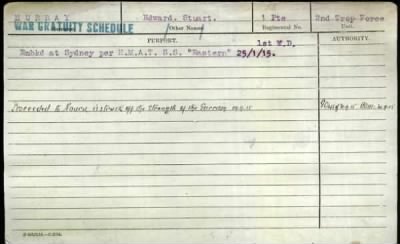 MURRAY Edward. Stuart. 1 Pte 2nd Trop Force
WAR GRATUITY SCHEDULE (Other Names) Regimental No. Unit.
PURPORT. 1st M.D. AUTHORITY.
Embkd at Sydney per H.M.A.T. S.S. "Eastern" 25/1/15.
Proceeded to Nauru & struck off the strength of the Garrison